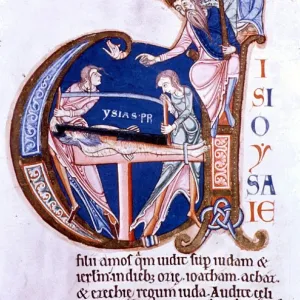 YSIAS·PR
I
S
I
O
Y
SA
IE
filii amos quā uidit sup iudam &
ierlm in dieb; ozie. ioatham. achaz.
& ezechie regum iuda. Audite celi